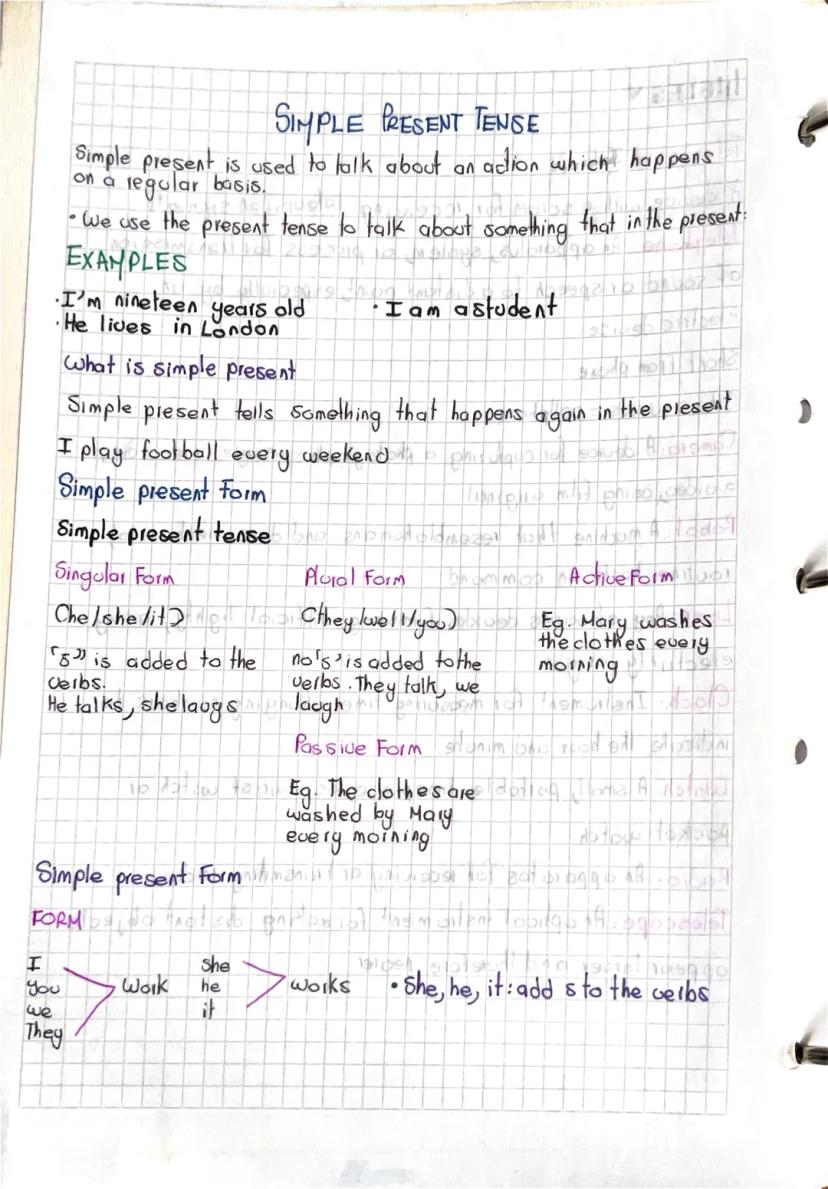 SIMPLE PRESENT TENSE
Simple present is used to talk about an action which happens
on a regular basis.
• We use the present tense to talk about something that in the present:
EXAMPLES
• I'm nineteen years old • I am a student
• He lives in London
What is simple present
Simple present tells something that happens again in the present
I play football every weekend
Simple present Form
Simple present tense
Singular Form Plural Form Active Form
(he/she/it) (they/we/I/you) Eg. Mary washes
the clothes every
morning
"s" is added to the
verbs.
He talks, she laugs
no 's' is added to the
verbs. They talk, we
laugh
Passive Form
Eg. The clothes are
washed by Mary
every morning
Simple present Form
FORM
I
you
we
They
Work
She
he
it
works
• She, he, it: add s to the verbs